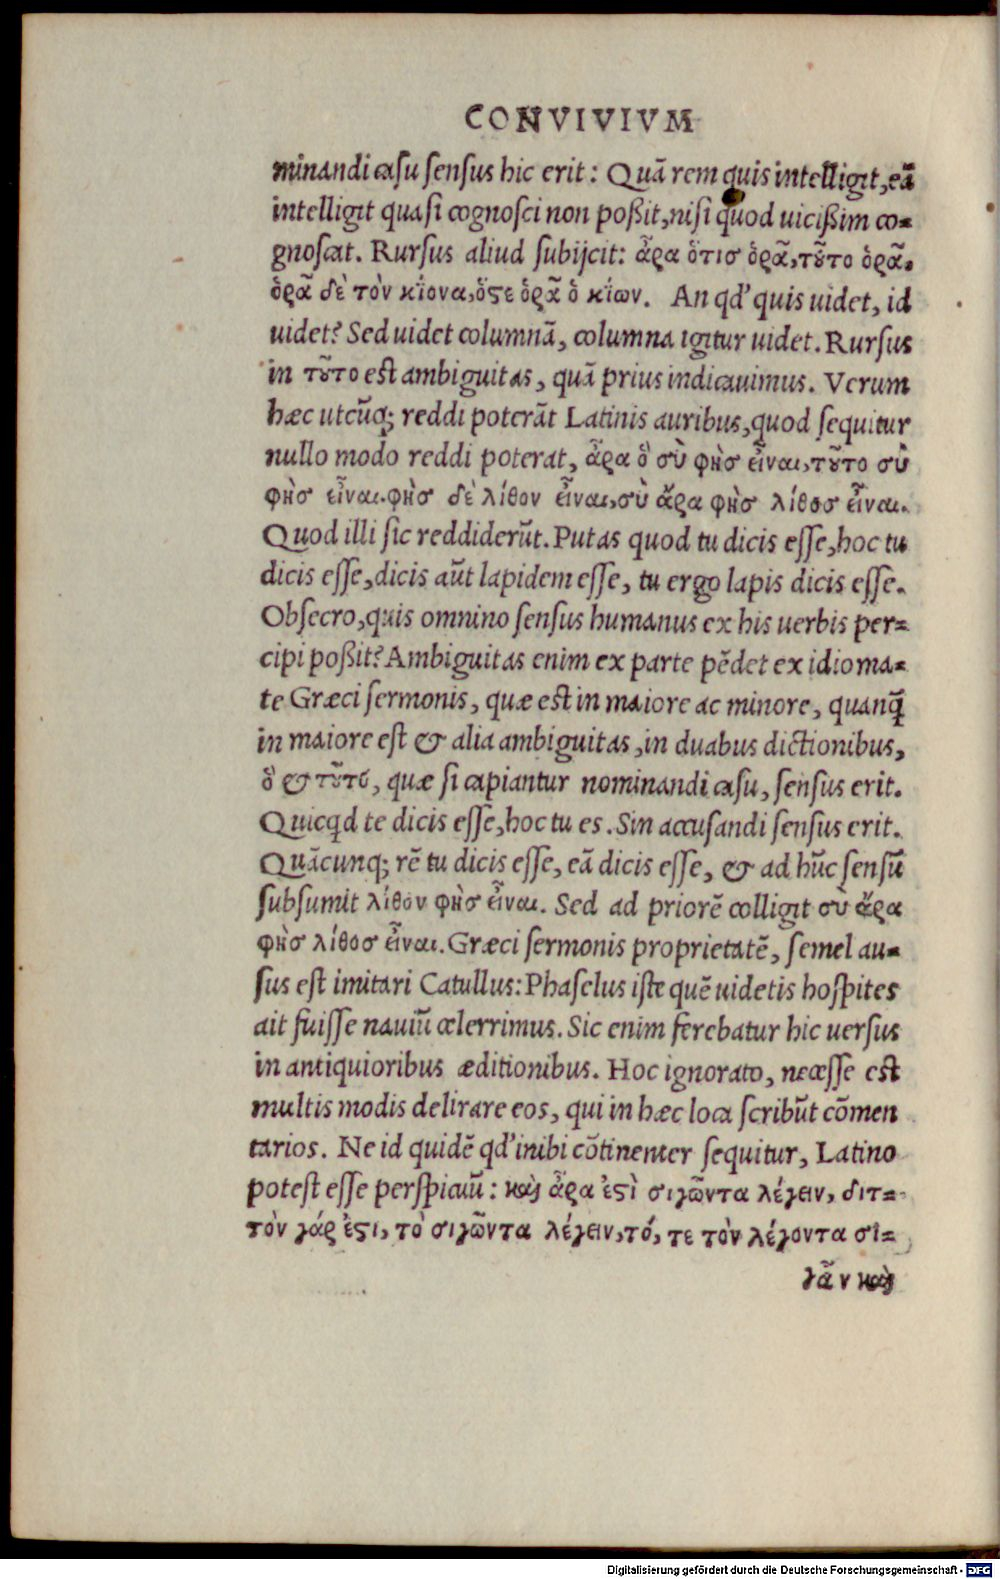 CONVIVIVM
minandi casu sensus hic erit: Quã rem quis intelligit, eã
intelligit quasi cognosci non poßit, nisi quod uicißim co-
gnoscat. Rursus aliud subijcit: ἆρα ὅτισ ὁρᾷ, τοῦτο ὁρᾷ.
ὁρᾷ δὲ τὸν κίονα, ὅστε ὁρᾷ ὁ κίων. An qd' quis uidet, id
uidet? Sed uidet columnã, columna igitur uidet. Rursus
in τοῦτο est ambiguitas, quã prius indicauimus. Verum
hæc utcũq; reddi poterãt Latinis auribus, quod sequitur
nullo modo reddi poterat, ἆρα ὃ σὺ φῂσ εἶναι, τοῦτο σὺ
φῂσ εἶναι. φῂσ δὲ λίθον εἶναι, σὺ ἄρα φῂσ λίθοσ εἶναι.
Quod illi sic reddiderũt. Putas quod tu dicis esse, hoc tu
dicis esse, dicis aũt lapidem esse, tu ergo lapis dicis esse.
Obsecro, quis omnino sensus humanus ex his uerbis per-
cipi poßit? Ambiguitas enim ex parte pẽdet ex idioma-
te Græci sermonis, quæ est in maiore ac minore, quanq̃
in maiore est & alia ambiguitas, in duabus dictionibus,
ὃ & τοῦτο, quæ si capiantur nominandi casu, sensus erit.
Quicqd te dicis esse, hoc tu es. Sin accusandi sensus erit.
Quãcunq; rẽ tu dicis esse, eã dicis esse, & ad hũc sensũ
subsumit λίθον φῂσ εἶναι. Sed ad priorẽ colligit σὺ ἄρα
φῂσ λίθοσ εἶναι. Græci sermonis proprietatẽ, semel au-
sus est imitari Catullus: Phaselus iste quẽ uidetis hospites
ait fuisse nauiũ celerrimus. Sic enim ferebatur hic uersus
in antiquioribus æditionibus. Hoc ignorato, necesse est
multis modis delirare eos, qui in hæc loca scribũt cõmen
tarios. Ne id quidẽ qd' inibi cõtinenter sequitur, Latino
potest esse perspicuũ: καὶ ἆρα ἐστὶ σιγῶντα λέγειν, διτ-
τὸν γάρ ἐστι, τὸ σιγῶντα λέγειν, τό, τε τὸν λέγοντα σι-
γᾶν καὶ
Digitalisierung gefördert durch die Deutsche Forschungsgemeinschaft - DFG